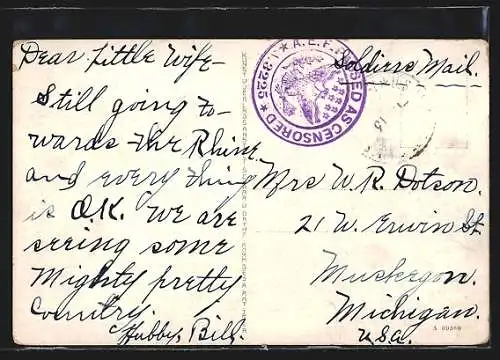 Dear Little Wife-
Still going to-
wards the Rhine
and every thing
is O.K. We are
seeing some
Mighty pretty
Country.
Hubby, Bill.
A.E.F. PASSED AS CENSORED
Soldirrs Mail.
Mrs W. R. Dotson.
21 W. Erwin St.
Muskegon.
Michigan.
USA.